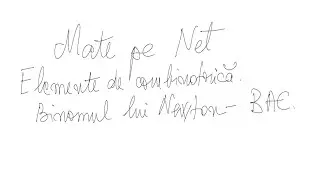 Mate pe Net
Elemente de combinatorică.
Binomul lui Newton - BAC.